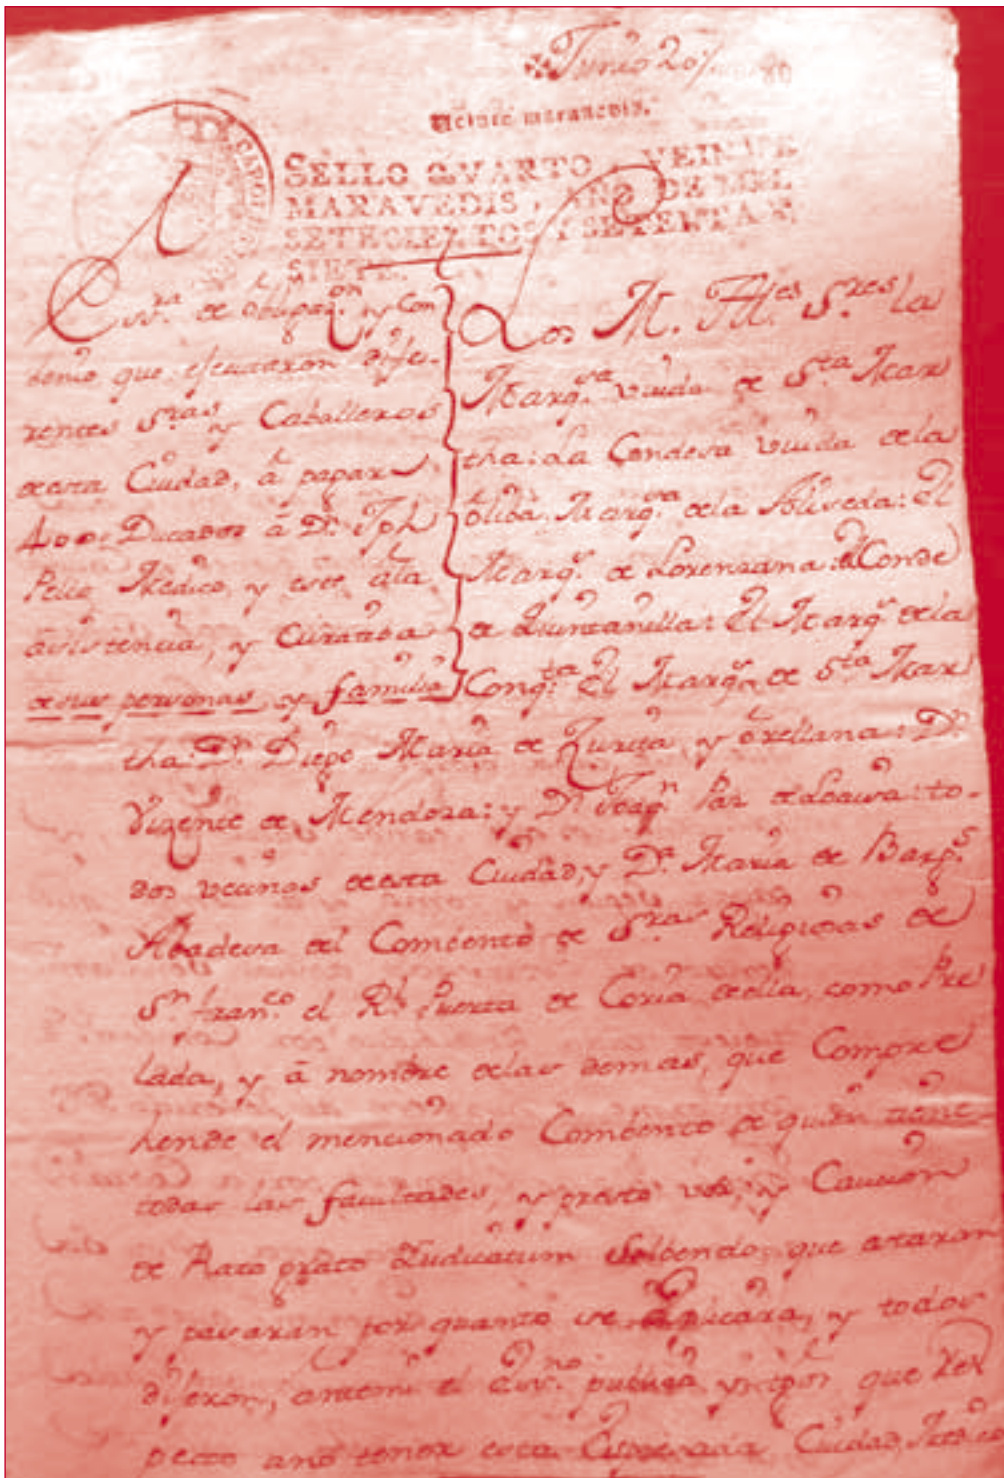 Junio 20
Veinte maravedis.
SELLO QVARTO, VEINTE
MARAVEDIS, AÑO DE MIL
SETECIENTOS Y SETENTA Y
SIETE.
Ess.ra de obligaz.on y Con
benio que ejecutaron dife-
rentes S.ras y Caballeros
de esta Ciudad, á pagar
400 Ducados á D.n Jph
Medico, y este á la
asistencia, y Curatiba
de sus personas, y familia
Los M. Ill.es S.res la
Marq.sa viuda de S.ta Mar
tha: La Condesa viuda de la
Oliba: Marq.sa de la Liseda: El
Marq.s de Lorenzana: El Conde
de Quintanilla: El Marq.s de la
Conq.ta El Marq.s de S.ta Mar
tha: D.n Diego Maria de Zurita, y Orellana: D.n
Vizente de Mendoza: y D.n Joaq.n Paz de Loaisa: to-
dos vecinos de esta Ciudad, y D.a Maria de Barg.s
Abadesa del Combento de S.ras Religiosas de
S.n Fran.co el R.l Puerta de Coria de ella, como Pre
lada, y á nombre de las demas, que Compre
hende el mencionado Combento de quien tiene
todas las facultades, y presto voz, y Caucion
de Rato grato Iudicatum Solbendo, que estaran
y pasaran por quanto se y todos
dijeron, antemi el Ess.no publico, y tgos, que res
pecto a no tener esta Ciudad, Medico